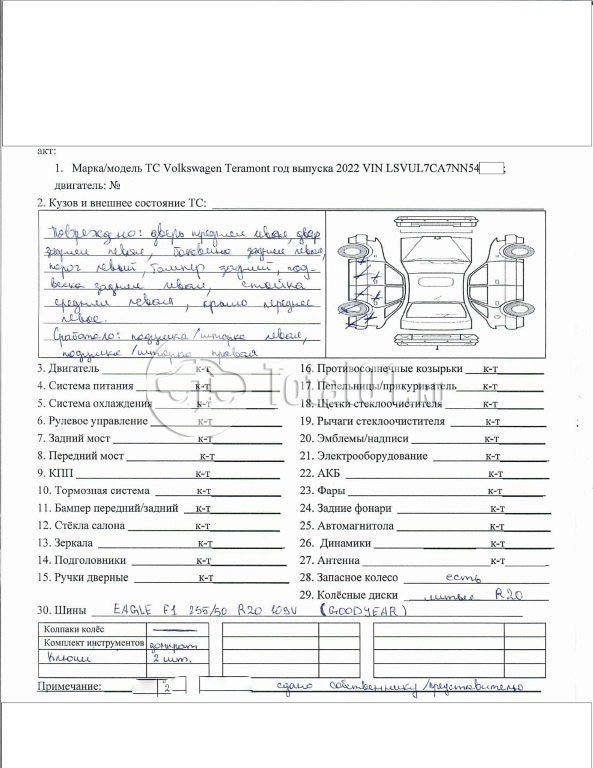 акт:
1. Марка/модель ТС Volkswagen Teramont год выпуска 2022 VIN LSVUL7CA7NN54 ;
двигатель: №
2. Кузов и внешнее состояние ТС:
Повреждено: дверь передняя левая, дверь
задняя левая, боковина задняя левая,
порог левый, бампер задний, под-
веска задняя левая, стойка
средняя левая, крыло переднее
левое.
Сработало: подушка/шторка левая,
подушка/шторка правая
3. Двигатель к-т
4. Система питания к-т
5. Система охлаждения к-т
6. Рулевое управление к-т
7. Задний мост к-т
8. Передний мост к-т
9. КПП к-т
10. Тормозная система к-т
11. Бампер передний/задний к-т
12. Стёкла салона к-т
13. Зеркала к-т
14. Подголовники к-т
15. Ручки дверные к-т
16. Противосолнечные козырьки к-т
17. Пепельницы/прикуриватель к-т
18. Щетки стеклоочистителя к-т
19. Рычаги стеклоочистителя к-т
20. Эмблемы/надписи к-т
21. Электрооборудование к-т
22. АКБ к-т
23. Фары к-т
24. Задние фонари к-т
25. Автомагнитола к-т
26. Динамики к-т
27. Антенна к-т
28. Запасное колесо есть
29. Колёсные диски литые R20
30. Шины EAGLE F1 255/50 R20 109V (GOODYEAR)
Колпаки колёс —
Комплект инструментов домкрат
Ключи 2 шт.
Примечание: 2 сдано собственнику/представителю